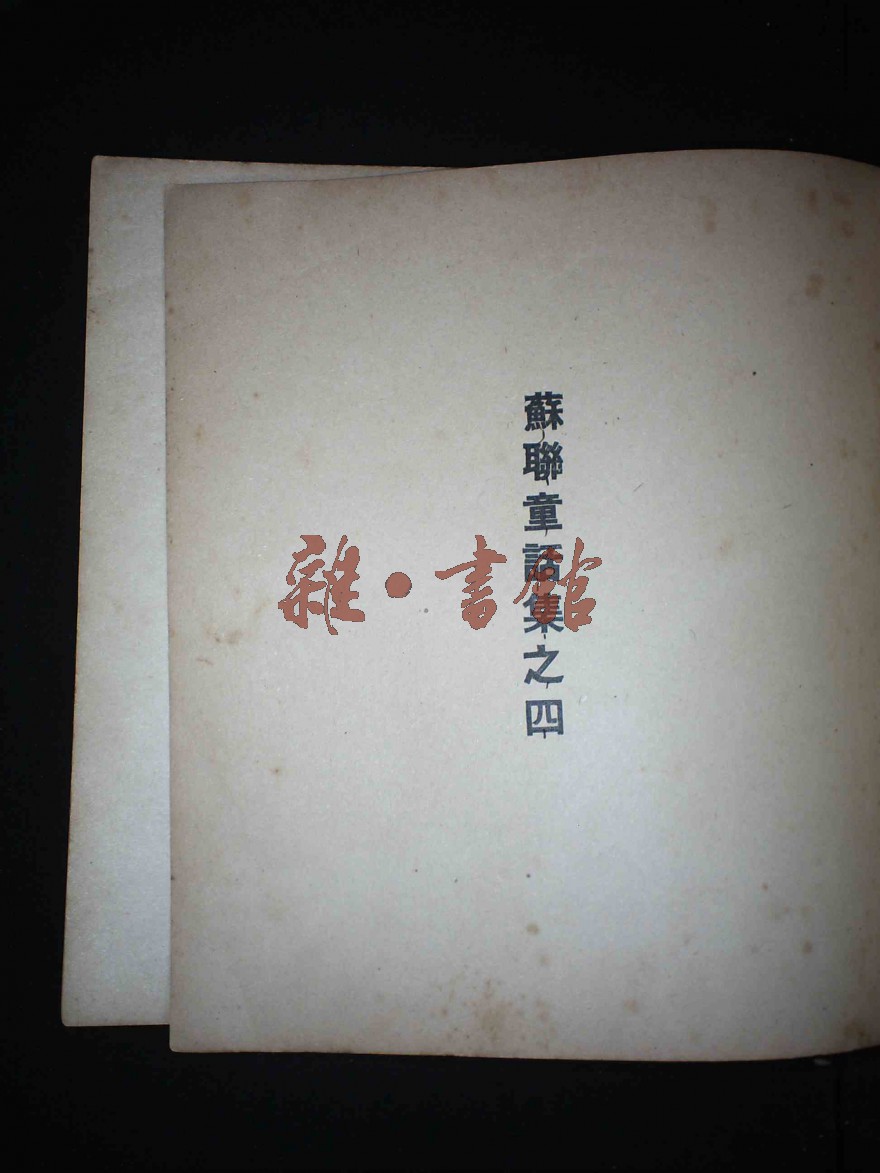 蘇聯童話集之四
雜·書館